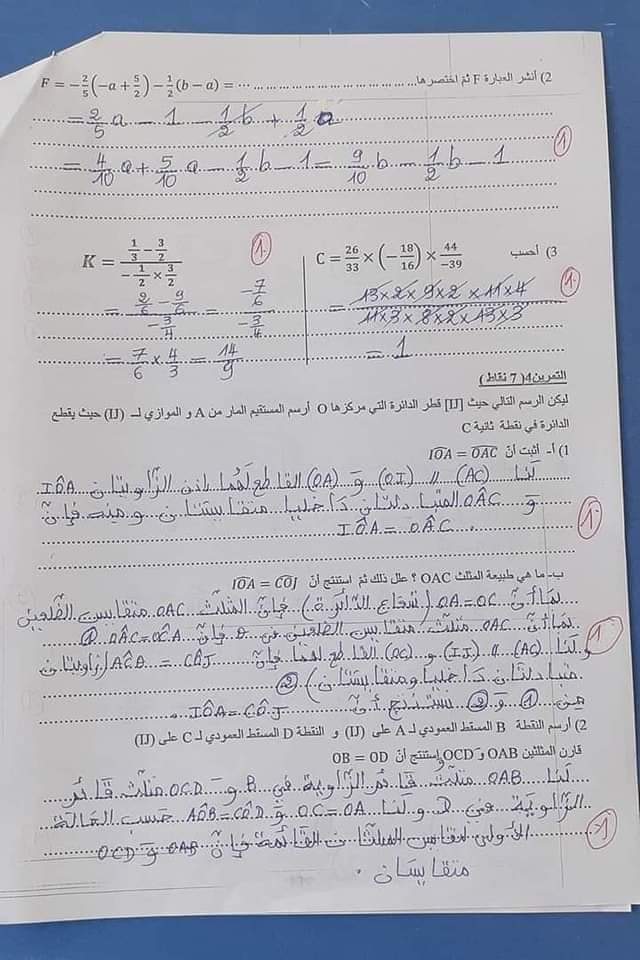 2) أنشر العبارة F ثم اختصرها F = −2/5(−a + 5/2) − 1/2(b − a) = ⋯
= 2/5 a − 1 − 1/2 b + 1/2 a
= 4/10 a + 5/10 a − 1/2 b − 1 = 9/10 b − 1/2 b − 1
1
3) أحسب C = 26/33 × (−18/16) × 44/−39
= 13×2×9×2×11×4 / 11×3×8×2×13×3
= 1
1
K = (1/3 − 3/2) / (−1/2 × 3/2)
= (2/6 − 9/6) / (−3/4) = (−7/6) / (−3/4)
= 7/6 × 4/3 = 14/9
1
التمرين4( 7 نقاط )
ليكن الرسم التالي حيث [IJ] قطر الدائرة التي مركزها O أرسم المستقيم المار من A و الموازي لـ (IJ) حيث يقطع
الدائرة في نقطة ثانية C
1) أ- أثبت أنّ IOA = OAC
لنا (AC) // (OI) و (OA) القاطع لهما إذن الزّاويتان IÔA
و OÂC المتبادلتان داخليا متقايستان و منه فإنّ
IÔA = OÂC .
1
ب- ما هي طبيعة المثلث OAC ؟ علل ذلك ثم استنتج أنّ IOA = COJ
بما أنّ OA=OC (شعاع الدّائرة) فإنّ المثلّث OAC متقايس الضّلعين
بما أنّ OAC مثلّث متقايس الضّلعين في O فإنّ OÂC=OĈA ①
و لنا (AC) // (IJ) و (OC) القاطع لهما فإنّ AĈO = CÔJ (زاويتان
متبادلتان داخليا ومتقايستان) ②
من ① و ② نستنتج أنّ IÔA = CÔJ .
1
2) أرسم النقطة B المسقط العمودي لـ A على (IJ) و النقطة D المسقط العمودي لـ C على (IJ)
قارن المثلثين OAB و OCD واستنتج أنّ OB = OD
لنا OAB مثلّث قائم الزّاوية في B و OCD مثلّث قائم
الزّاوية في D و لنا OC=OA و AÔB=CÔD حسب الحالة
الأولى لتقايس المثلّثات القائمة فإنّ OAB و OCD
متقايسان .
1